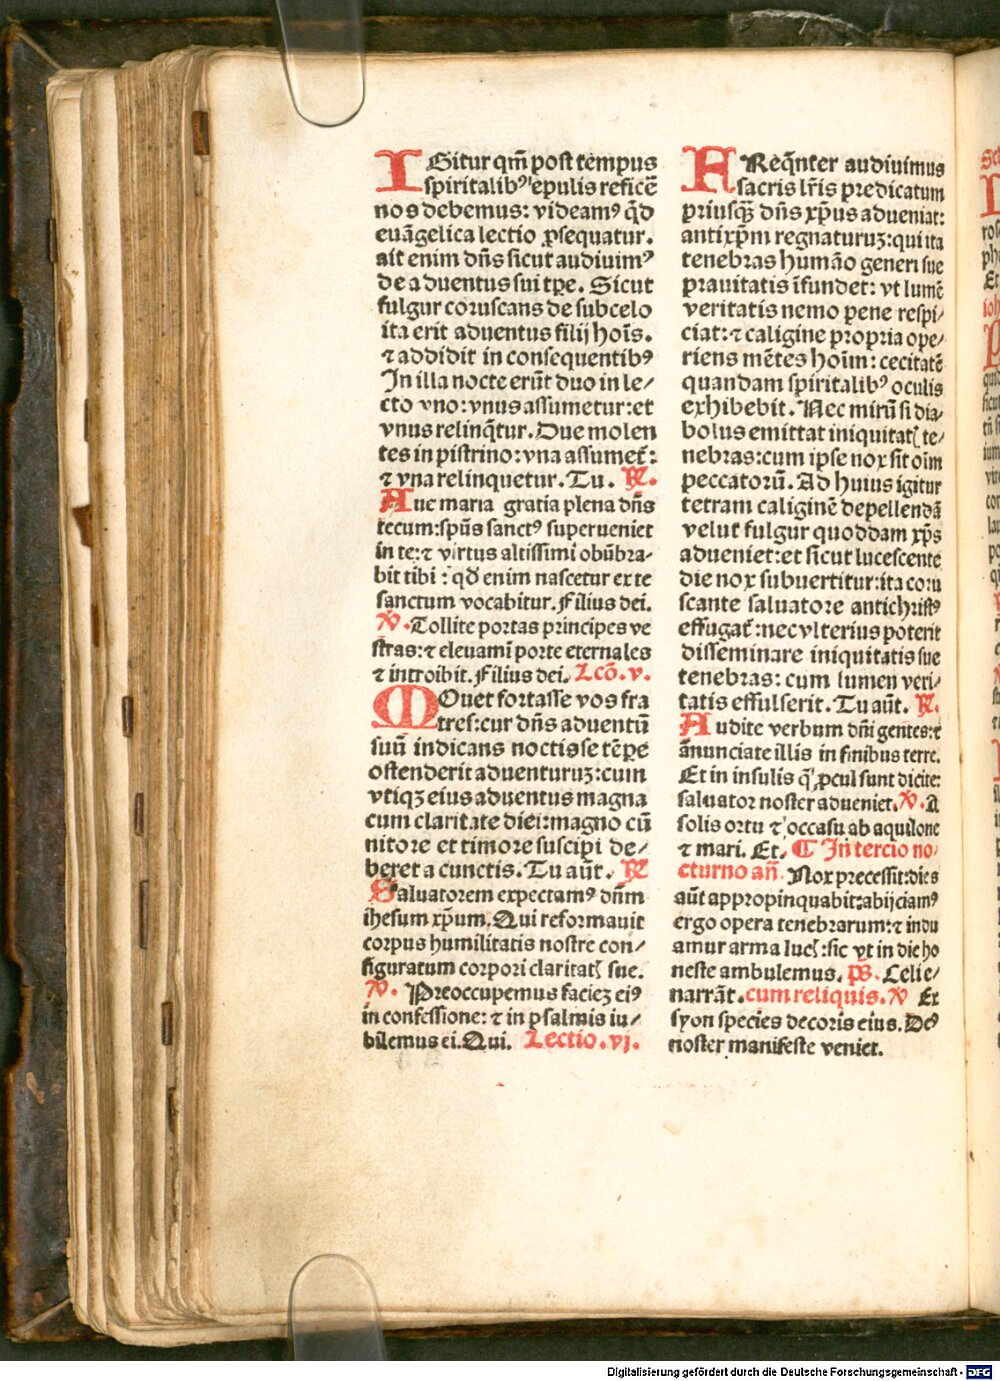 IGitur qm̄ post tempus
spiritalibꝰ epulis reficē
nos debemus: videamꝰ qd̄
euāgelica lectio ꝓsequatur.
ait enim dn̄s sicut audiuimꝰ
de aduentus sui tp̄e. Sicut
fulgur coruscans de subcelo
ita erit aduentus filij hoīs.
⁊ addidit in consequentibꝰ
In illa nocte erūt duo in le/
cto vno: vnus assumetur: et
vnus relinq̄tur. Due molen
tes in pistrino: vna assumet̄:
⁊ vna relinquetur. Tu. ℟.
Aue maria gratia plena dn̄s
tecum: spūs sanctꝰ superueniet
in te: ⁊ virtus altissimi obūbra-
bit tibi: qd̄ enim nascetur ex te
sanctum vocabitur. Filius dei.
℣. Tollite portas principes ve
stras: ⁊ eleuamī porte eternales
⁊ introibit. Filius dei. Lcō. v.
MOuet fortasse vos fra
tres: cur dn̄s aduentū
suū indicans noctis se tēpe
ostenderit aduenturuꝫ: cum
vtiqꝫ eius aduentus magna
cum claritate diei: magno cū
nitore et timore suscipi de/
beret a cunctis. Tu aūt. ℟
Saluatorem expectamꝰ dn̄m
ihesum xp̄um. Qui reformauit
corpus humilitatis nostre con/
figuratum corpori claritatꝭ sue.
℣. Preoccupemus faciez eiꝰ
in confessione: ⁊ in psalmis iu/
bilemus ei. Qui. Lectio. vj.
FReq̄nter audiuimus
sacris lr̄is predicatum
priusqꝫ dn̄s xp̄us adueniat:
antixp̄m regnaturuꝫ: qui ita
tenebras humāo generi sue
prauitatis īfundet: vt lumē
veritatis nemo pene respi/
ciat: ⁊ caligine propria ope/
riens mētes hoīm: cecitatē
quandam spiritalibꝰ oculis
exhibebit. Nec mirū si dia/
bolus emittat iniquitatꝭ te/
nebras: cum ipse nox sit oīm
peccatorū. Ad huius igitur
tetram caliginē depellendā
velut fulgur quoddam xp̄s
adueniet: et sicut lucescente
die nox subuertitur: ita coru
scante saluatore antichristꝰ
effugat̄: nec vlterius poterit
disseminare iniquitatis sue
tenebras: cum lumen veri/
tatis effulserit. Tu aūt. ℟.
Audite verbum dn̄i gentes: ⁊
ānunciate illis in finibus terre.
Et in insulis q̄ ꝓcul sunt dicite:
saluator noster adueniet. ℣. A
solis ortu ⁊ occasu ab aquilone
⁊ mari. Et. ¶ In tercio no/
cturno an̄. Nox precessit: dies
aūt appropinquabit: abijciamꝰ
ergo opera tenebrarum: ⁊ indu
amur arma lucꝭ: sic vt in die ho
neste ambulemus. ps. Celi e/
narrāt. cum reliquis. ℣ Ex
syon species decoris eius. Deꝰ
noster manifeste veniet.
Digitalisierung gefördert durch die Deutsche Forschungsgemeinschaft - DFG